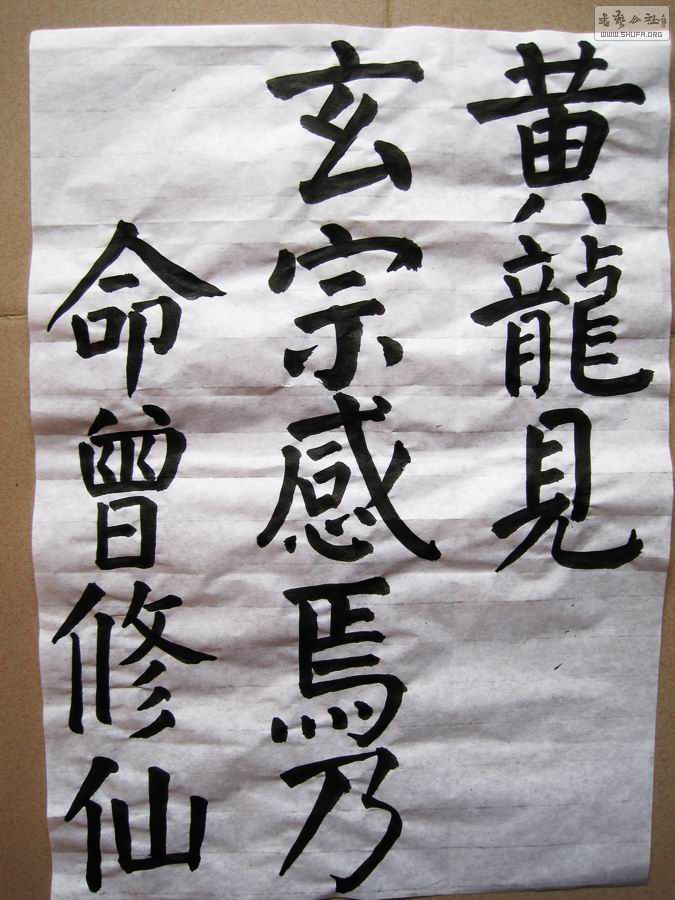 黄龍見
玄宗感焉乃
命曾修仙
書藝公社
WWW.SHUFA.ORG